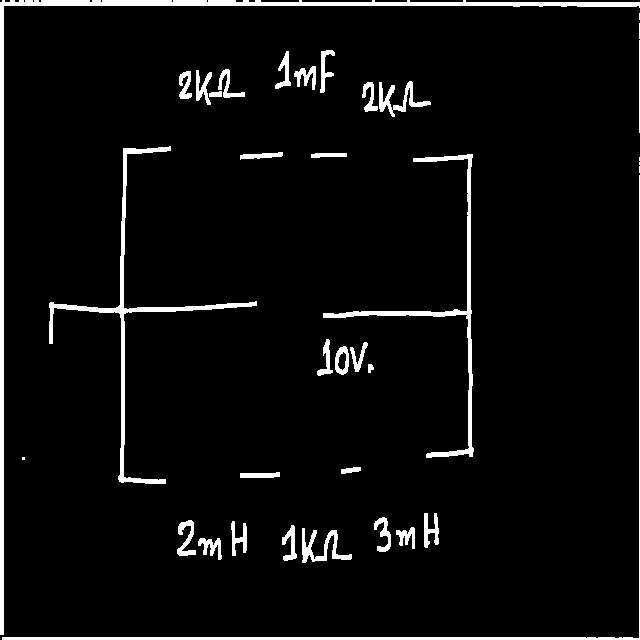 2KΩ 1mF 2KΩ
10V.
2mH 1KΩ 3mH